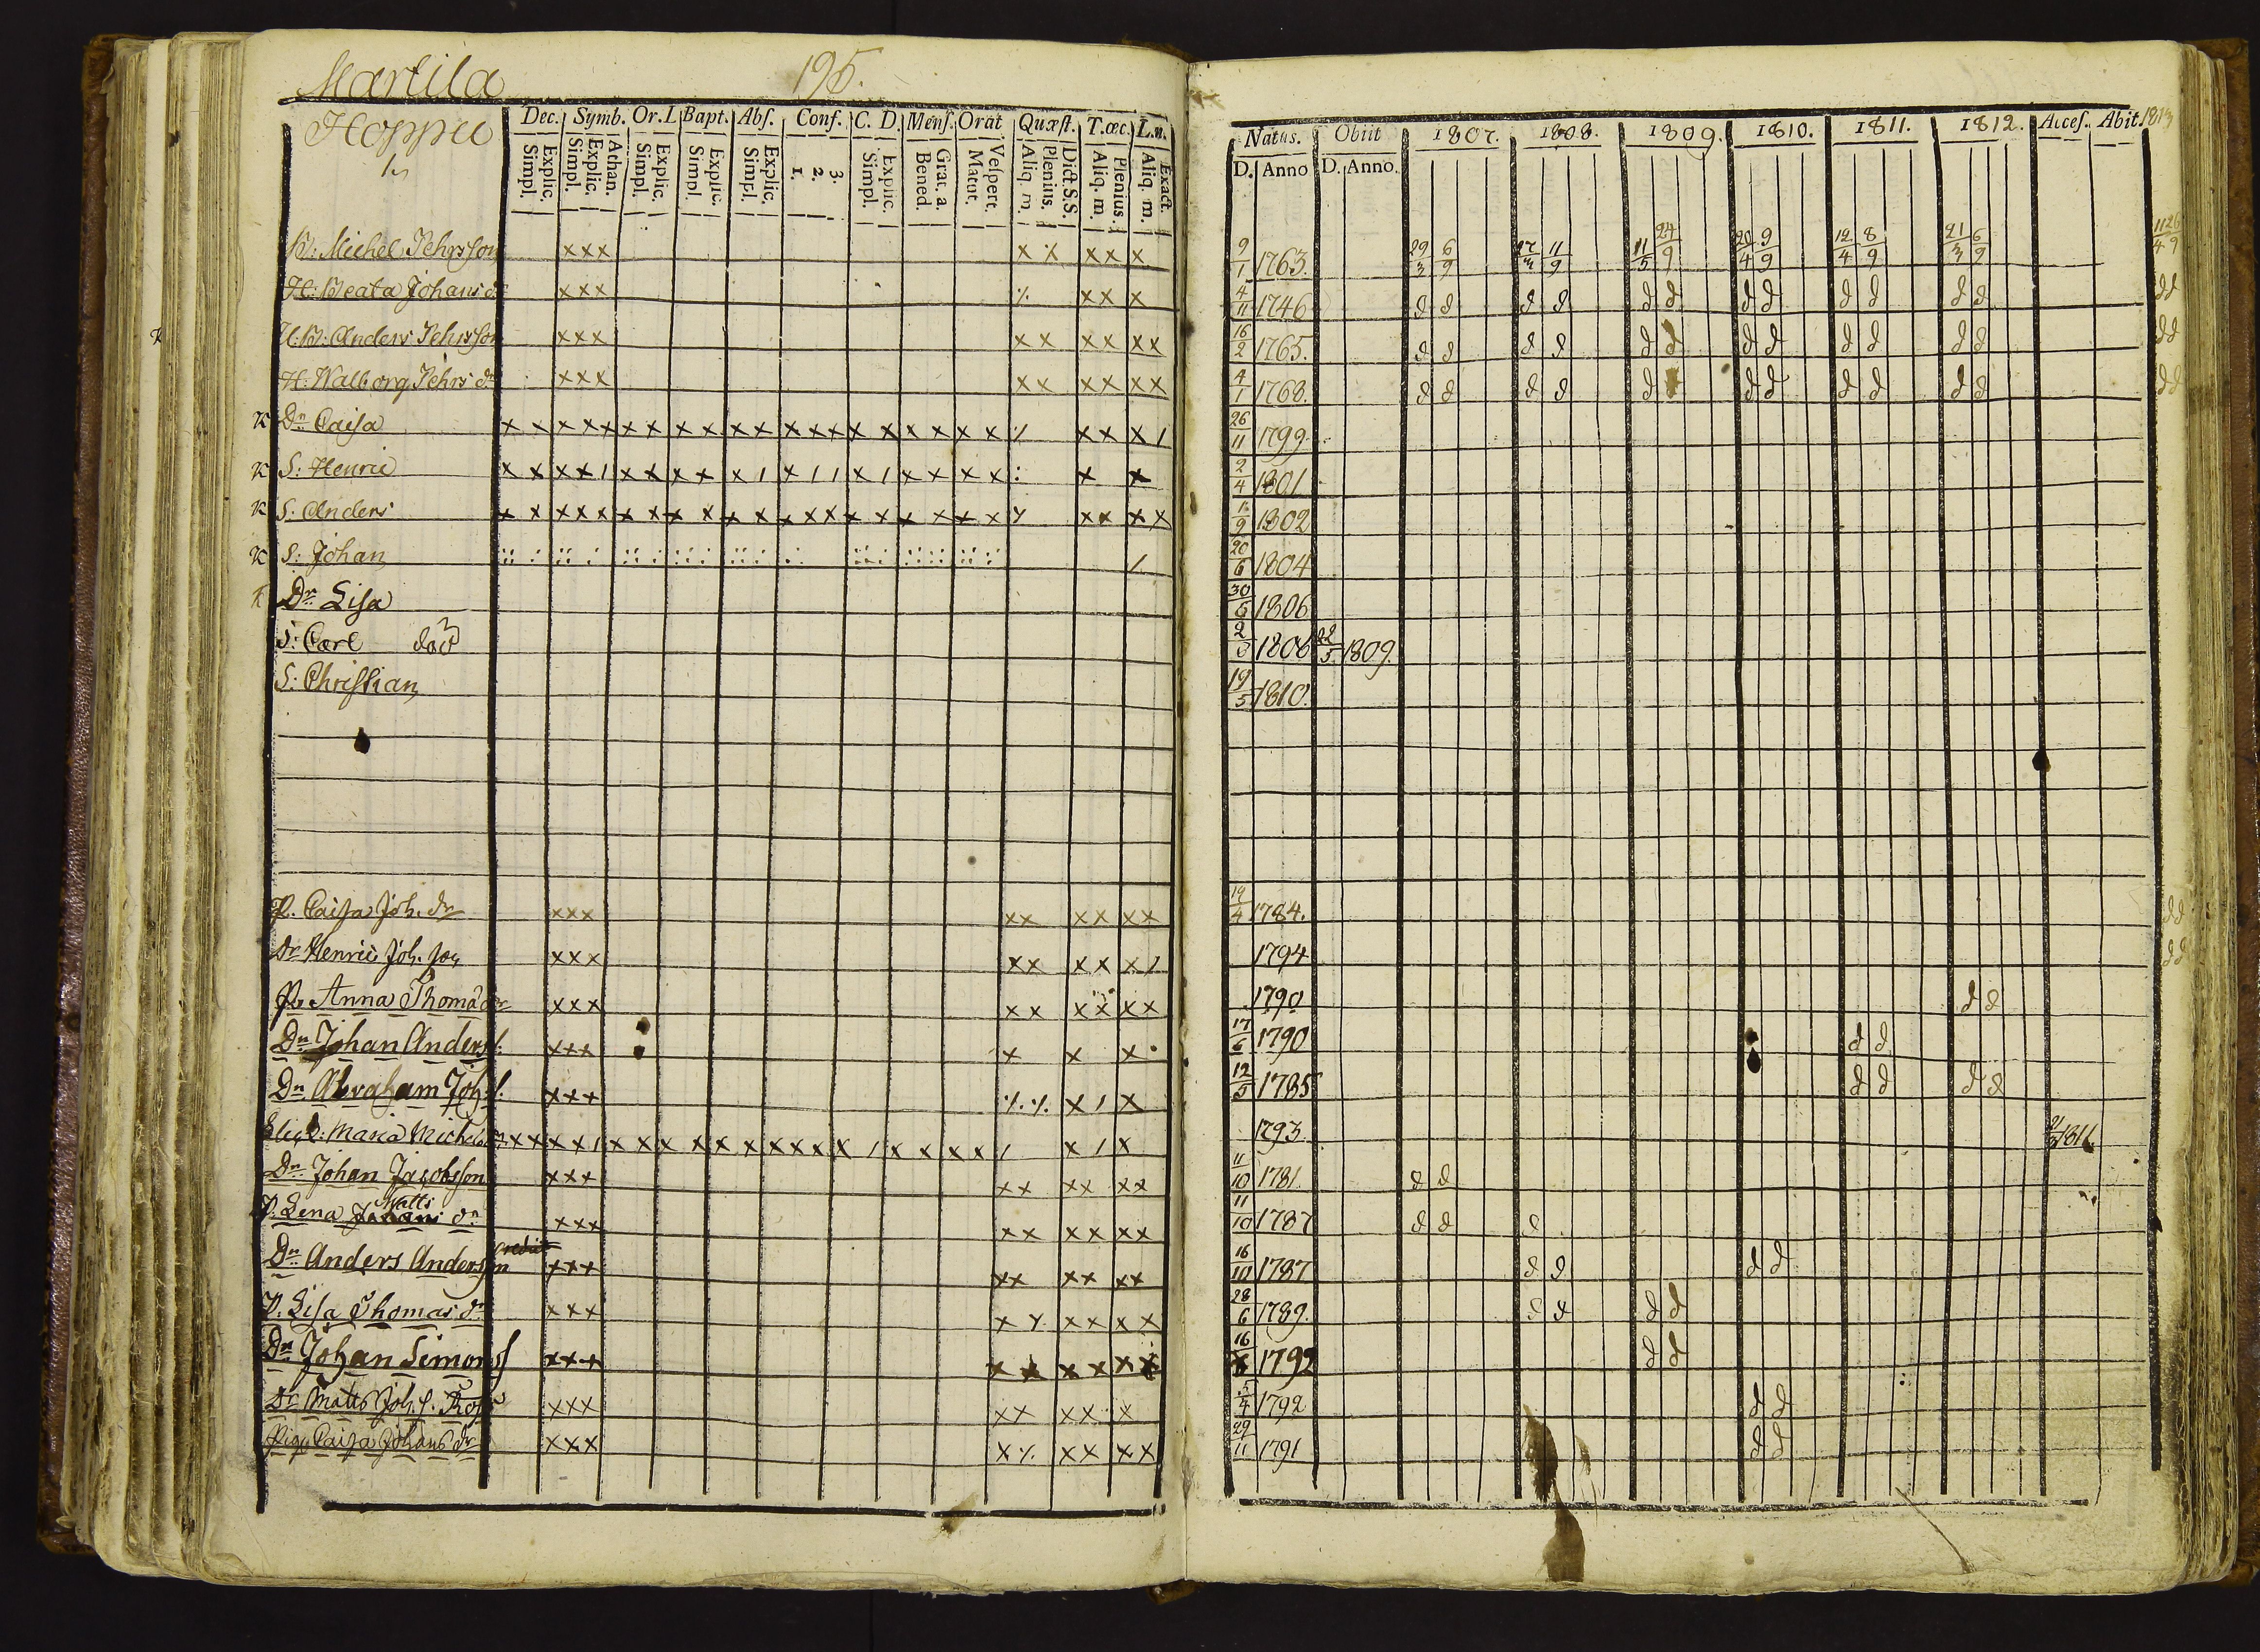 Martila 195.
Hoppu
Dec. Symb. Or. L Bapt. Abs. Conf. C. D. Mens. Orat Quæst. T. œc. L. n.
Explic. Simpl. Athan. Explic. Simpl. Explic. Simpl. Explic. Simpl. Explic. Simpl. 3. 2. 1. Explic. Simpl. Grat. a. Bened. Vespert. Matut. Dict. S.S. Plenius. Aliq. m. Plenius. Aliq. m. Exact. Aliq. m.
Natus. Obiit 1807. 1808. 1809. 1810. 1811. 1812. Acces. Abit. 1813
D. Anno D. Anno.
B: Michel Pehrsson xxx x % xx x 9/1 1763. 29/3 6/9 27/3 11/9 11/5 24/9 20/4 9/9 12/4 8/9 21/3 6/9 11/4 26/9
H: Beata Johans dr xxx % xx x 4/11 1746 d d d d d d d d d d d d d d
H: B: Anders Pehrsson xxx xx xx xx 16/2 1765. d d d d d d d d d d d d d d
H: Walborg Pehrs dr xxx xx xx xx 4/1 1768. d d d d d d d d d d d d d d
Dr Caisa x x x x x x x x x x x x x x x x x x x x % x x x / 26/11 1799.
S: Henric x x x x / x x x x x / x / / x / x x x x : x x 2/4 1801
S: Anders x x x x x x x x x x x x x x x x x x x x % x x x x 1/9 1802
S: Johan / 20/6 1804
Dr Lisa 30/6 1806
S: Carl död 1808 22/5 1809.
S: Christian 19/5 1810.
P. Caisa Joh. dr xxx xx xx xx 19/4 1784. d d
Dr Henric Joh. son xxx xx xx x / 1794 d d
P. Anna Thomæ dr xxx xx xx xx 1790 d d
Dr Johan Anders s: xxx x x x 17/6 1790 d d
Dr Abraham Joh. s: xxx % % x / x 12/5 1785 d d d d
Maria Michels x x x x / x x x x x x x x x x / x x x x / x / x 1793 1811
Dr Johan Jacobsson xxx xx xx xx 11/10 1781 d d
P. Lena Matts dr xxx xx xx xx 11/10 1787 d d d
Dr Anders Andersson xxx xx xx xx 16/10 1787 d d d d
P. Lisa Thomas dr xxx x % xx xx 28/6 1789. d d d d
Dr Johan Simonss xxx xx xx xx 1792 d d
Dr Matts Joh. s. xxx xx xx x 5/4 1792 d d
Pig. Caisa Johans dr xxx x % xx xx 29/11 1791 d d